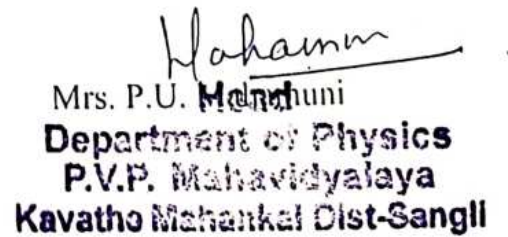 Mrs. P.U.
Department of Physics
P.V.P. Mahavidyalaya
Kavathe Mahankal Dist-Sangli